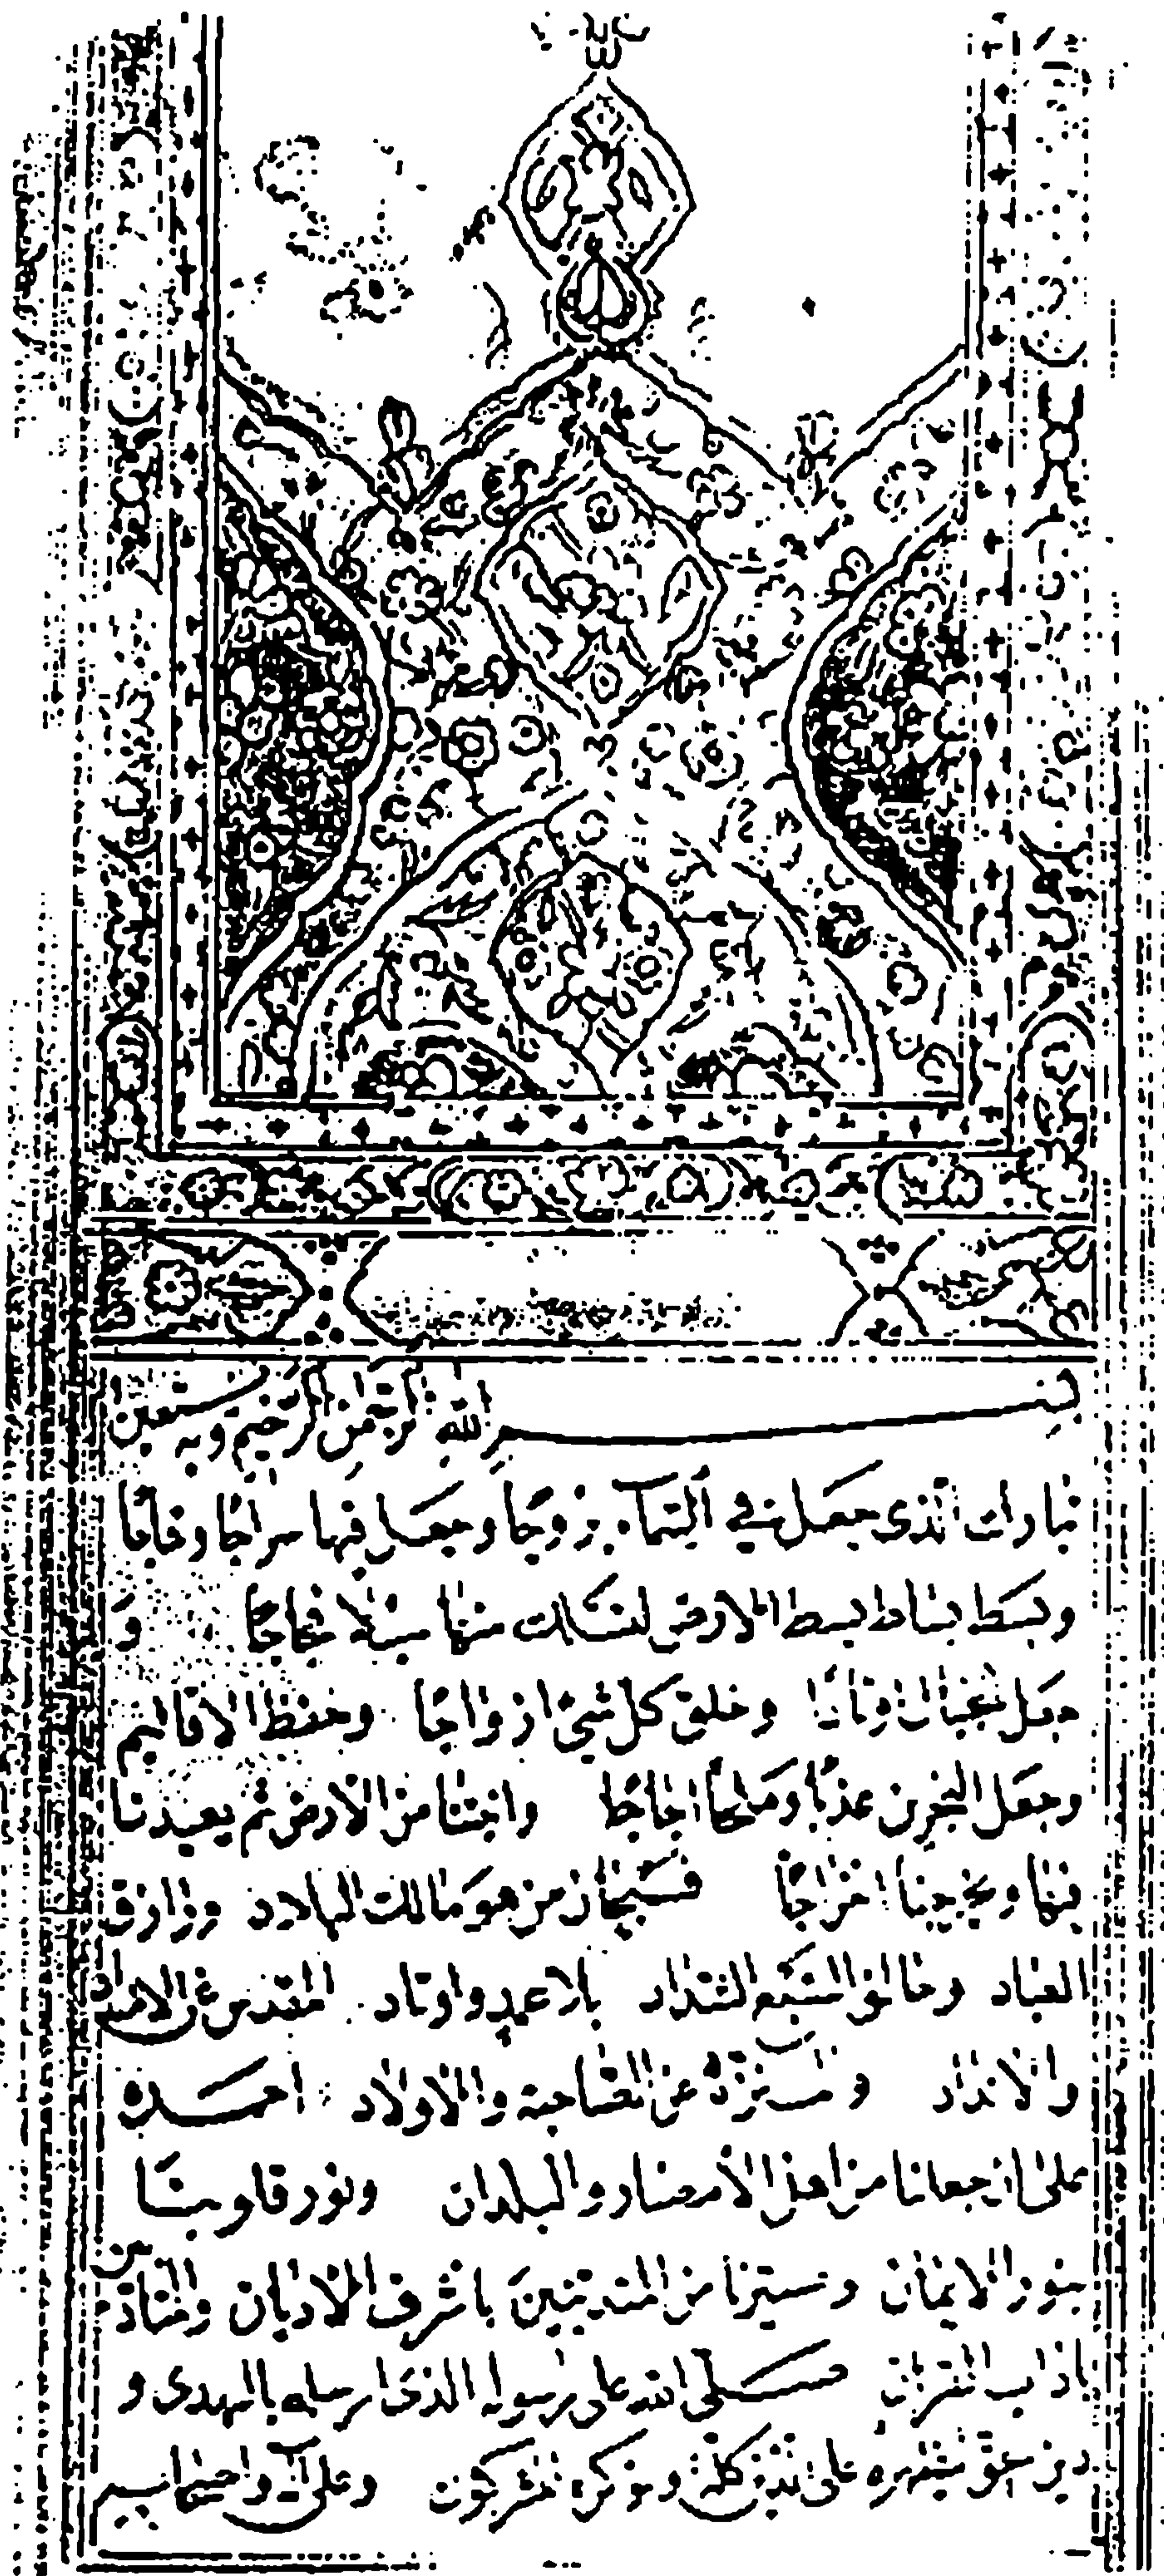 بسم الله الرحمن الرحيم وبه نستعين
تبارك الذى جعل فى السماء بروجا وجعل فيها سراجا وهاجا
وبسط بساط بسط الارض لنسلك منها سبلا فجاجا و
جعل الجبال اوتادا وخلق كل شئ ازواجا وحفظ الاقاليم
وجعل البحرين عذبا وملحا اجاجا وانبتنا من الارض ثم يعيدنا
فيها ويخرجنا اخراجا فسبحان من هو مالك البلاد ورازق
العباد وخالق السبع الشداد بلا عمد واوتاد المقدس عن الامداد
والانداد ومنزه عن الصاحبة والاولاد احمده
على ان جعلنا من اهل الأمصار والبلدان ونور قلوبنا
بنور الايمان وسيرنا من المتدينين باشرف الاديان والمتادبين
باداب القران صلى الله على رسوله الذى ارسله بالهدى و
دين الحق ليظهره على الدين كله ولو كره المشركون وعلى آله واصحابه